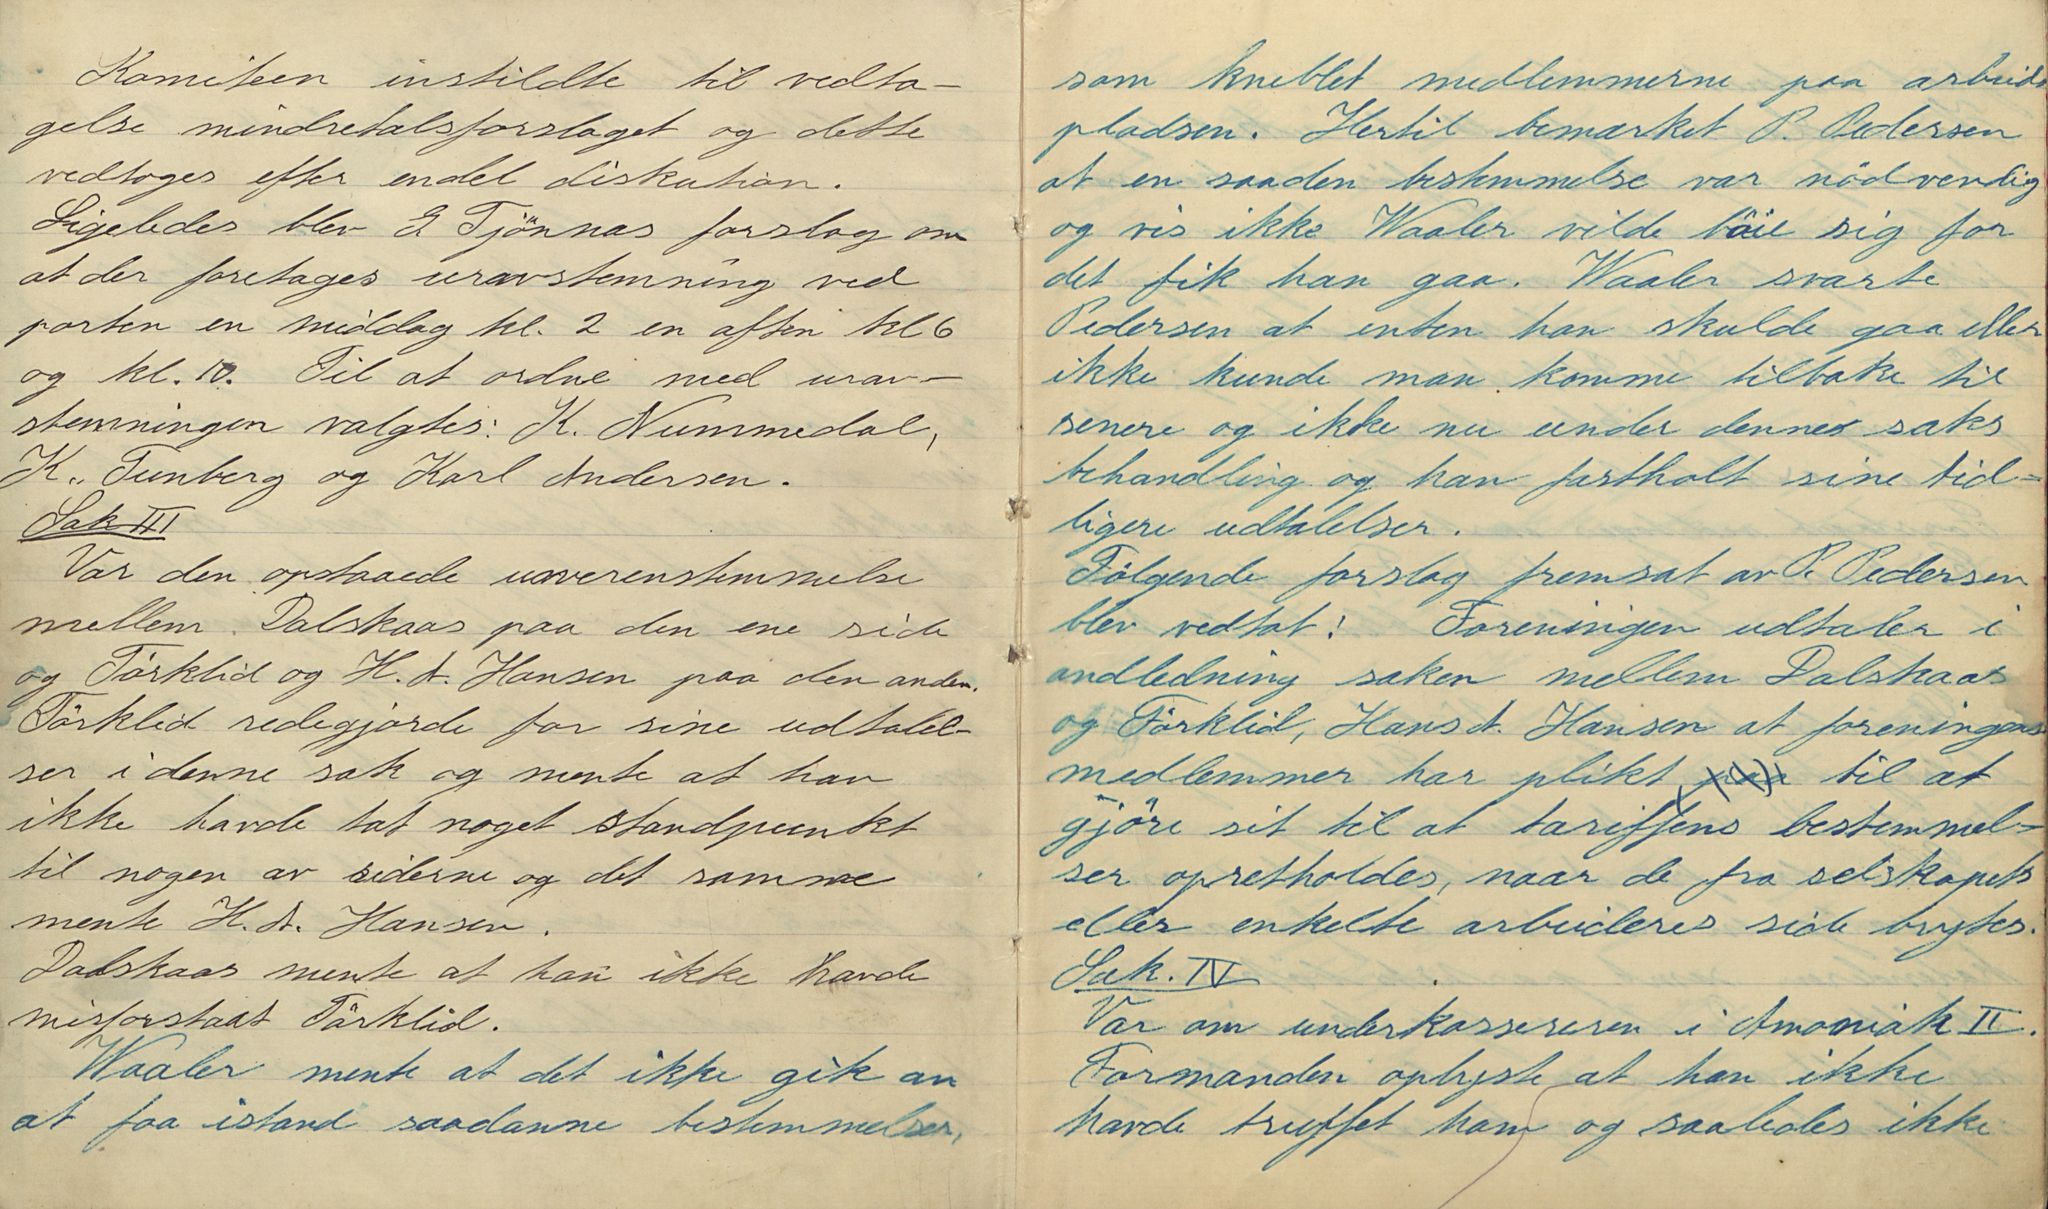 Komiteen instildte til vedta-
gelse mindretalsforslaget og dette
vedtoges efter endel diskution.
Ligeledes blev E Tjönnas forslag om
at der foretages uravstemning ved
porten en middag kl. 2 en aften kl 6
og kl. 10. Til at ordne med urav-
stemningen valgtes: K. Nummedal,
K. Tunberg og Karl Andersen.
Sak III
Var den opstaaede uoverenstemmelse
mellem Dalskaas paa den ene side
og Törklid og H. A. Hansen paa den anden.
Törklid redegjorde for sine udtalel-
ser i denne sak og mente at han
ikke havde tat noget standpunkt
til nogen av siderne og det samme
mente H. A. Hansen.
Dalskaas mente at han ikke havde
misforstaat Törklid.
Waaler mente at det ikke gik an
at faa istand saadanne bestemmelser,
som kneblet medlemmerne paa arbeids
pladsen. Hertil bemærket P. Pedersen
at en saaden bestemmelse var nödvendig
og vis ikke Waaler vilde böie sig for
det fik han gaa. Waaler svarte
Pedersen at enten han skulde gaa eller
ikke kunde man komme tilbake til
senere og ikke nu under dennes saks
behandling og han fastholt sine tid-
ligere udtalelser.
Fölgende forslag fremsat av P. Pedersen
blev vedtat: Foreningen udtaler i
andledning saken mellem Dalskaas
og Törklid, Hans A. Hansen at foreningens
medlemmer har plikt paa til at
gjöre sit til at tariffens bestemmel-
ser opretholdes, naar de fra selskapets
eller enkelte arbeideres side brytes.
Sak. IV
Var om underkassereren i Amoniak II.
Formanden oplyste at han ikke
havde truffet ham og saaledes ikke